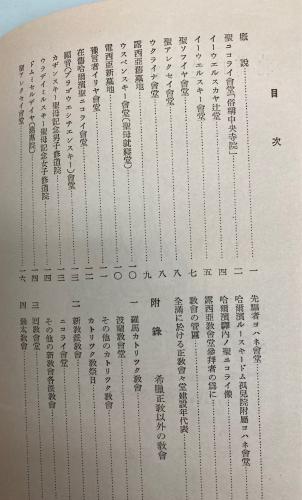 目次
概説…一
聖ニコライ會堂「俗稱中央寺院」…二
イーウエルスカヤ辻堂…四
イーウエルスキー會堂…五
聖ソフイヤ會堂…七
聖アレクセイ會堂…八
ウクライナ會堂…八
露西亞舊墓地…九
ウスペンスキー會堂(聖母就寢堂)…一〇
露西亞新墓地…一〇
豫言者イリヤ會堂…一一
在舊哈爾濱聖ニコライ會堂…一一
福音(ブラゴウエシチエンスキー)會堂…一二
カザンスキー聖母記念男子修道院…一三
ウラデイミルスキー聖母記念女子修道院…一四
ドムミセルデイヤ(慈惠院)…一四
聖アレクセイ會堂…一六
先驅者ヨハネ會堂
哈爾濱ルースキードム孤兒院附屬ヨハネ會堂
哈爾濱驛内ノ聖ニコライ像
露西亞教會堂參拜者の爲に
教會の管區
全滿に於ける正教會々堂建設年代表
附錄 希臘正教以外の教會
羅馬カトリツク教會
波蘭教會堂
その他のカトリツク教會
カトリツク教祭日
新教派教會
ニコライ會堂
その他の新教會各派教會
回教會堂
猶太教會